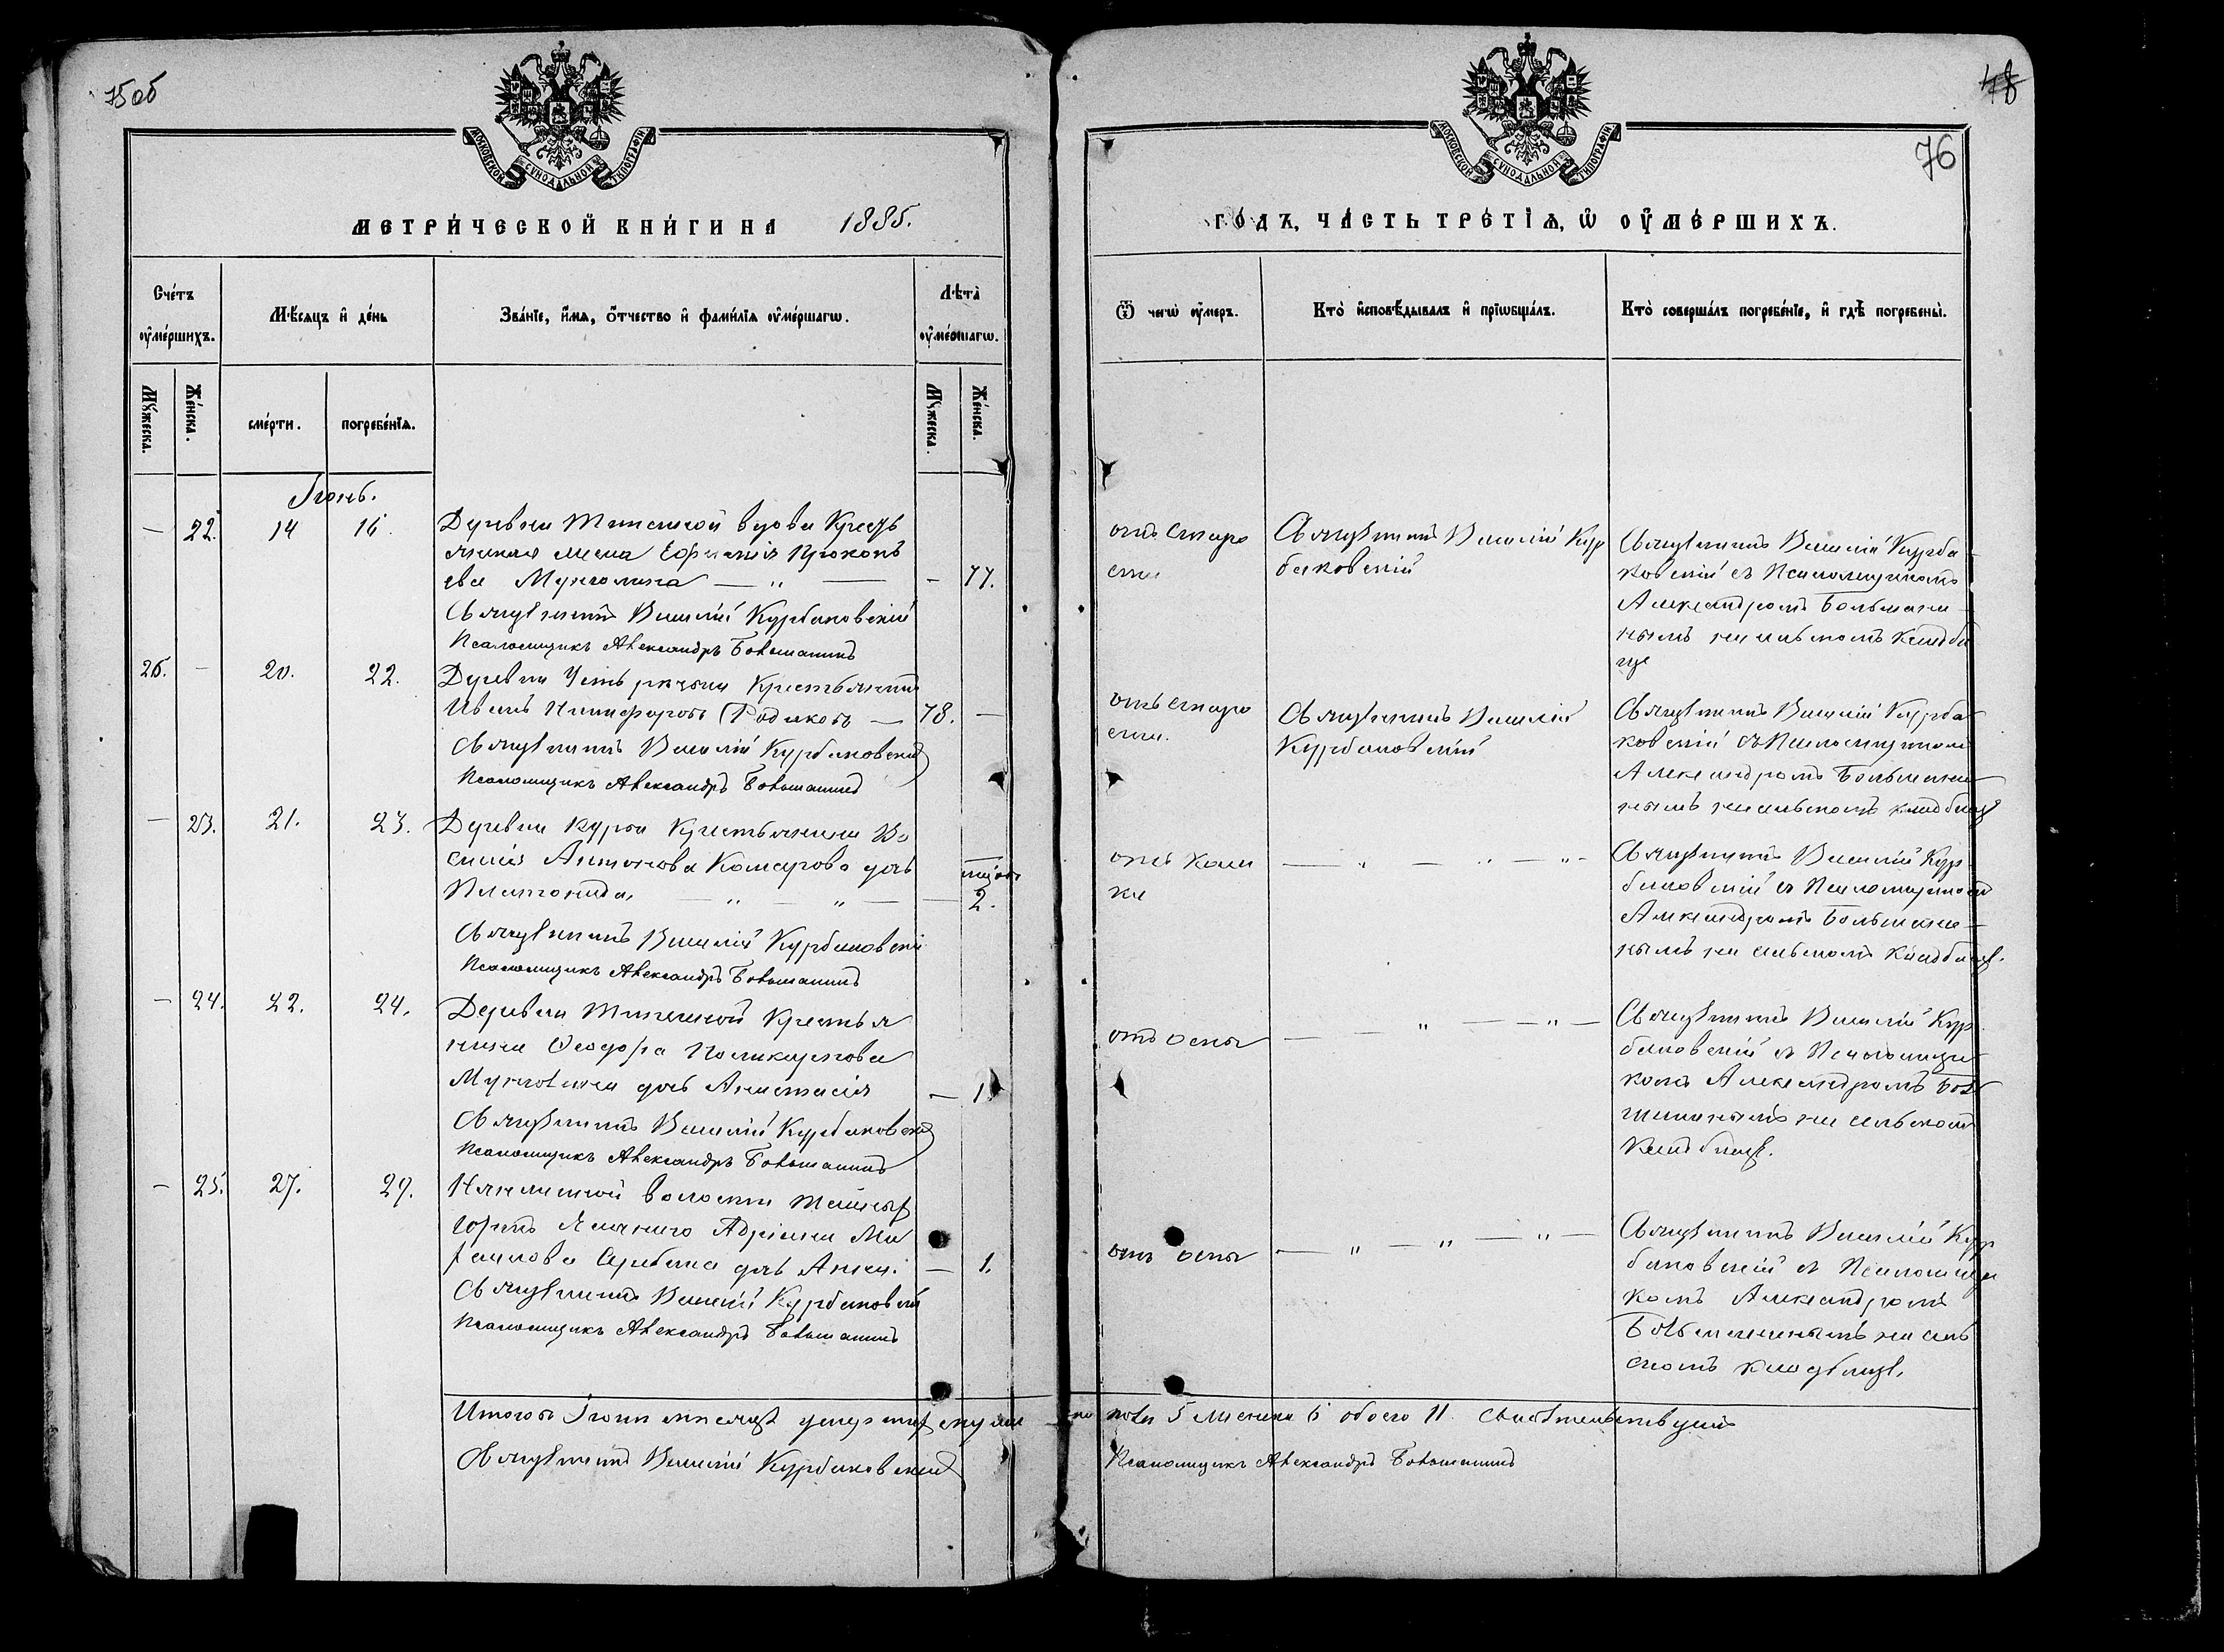 75 об
МОСКОВСКОЙ СѴНОДАЛЬНОЙ ТИПОГРАФІИ
МЕТРИ́ЧЕСКОЙ КНИ́ГИ НА 1885.
Сче́тъ оу҆ме́ршихъ.
Мѣ́сяцъ и҆ де́нь
Зва́нїе, и҆́мѧ, ѻ҆́тчество и҆ фами́лїѧ оу҆ме́ршагѡ.
Лѣта̀ оу҆ме́ршагѡ.
Мꙋ́жеска.
Же́нска.
сме́рти.
погребе́нїѧ.
Мꙋ́жеска.
Же́нска.
Іюнь.
— 22. 14 16.
Деревни вдова Кресть
янская жена Прокопь
ева — „ — - 77.
Священникъ Василій Курбановскій
Псаломщикъ Александръ Большанинъ
25. — 20. 22.
Деревни Крестьянинъ
Иванъ Никифоровъ Родиковъ — 78. —
Священникъ Василій Курбановскій
Псаломщикъ Александръ Большанинъ
— 23. 21. 23.
Деревни Курьи Крестьянина Ва
силія Антонова Комарова дочь
Платонида, — „ — „ — — мѣсяц. 2.
Священникъ Василій Курбановскій
Псаломщикъ Александръ Большанинъ
— 24. 22. 24.
Деревни Крестья
нина Ѳеодора Поликарпова
дочь Анастасія — 1
Священникъ Василій Курбановскій
Псаломщикъ Александръ Большанинъ
— 25. 27. 29.
волости
Адріана Ми
хаилова дочь Анна. — 1.
Священникъ Василій Курбановскій
Псаломщикъ Александръ Большанинъ
Итого въ Іюнѣ мѣсяцѣ умершихъ муже
Священникъ Василій Курбановскій
48
76
МОСКОВСКОЙ СѴНОДАЛЬНОЙ ТИПОГРАФІИ
ГО́ДЪ, ЧА́СТЬ ТРЕ́ТЇѦ, Ѡ҆ ОУ҆МЕ́РШИХЪ.
Ѿ чегѡ̀ оу҆́меръ.
Кто̀ и҆сповѣ́дывалъ и҆ прїѡбща́лъ.
Кто̀ соверша́лъ погребе́нїе, и҆ гдѣ̀ погребены̀.
отъ старо
сти
Священникъ Василій Кур
бановскій
Священникъ Василій Курба
новскій съ Псаломщикомъ
Александромъ Большани
нымъ на сельскомъ кладби
ще
отъ старо
сти.
Священникъ Василій
Курбановскій
Священникъ Василій Курба
новскій съ Псаломщикомъ
Александромъ Большани
нымъ на сельскомъ кладбищѣ
отъ каш
ля
— „ — „ — „ —
Священникъ Василій Кур
бановскій съ Псаломщикомъ
Александромъ Большани
нымъ на сельскомъ кладбищѣ.
отъ оспы
— — „ — — „ —
Священникъ Василій Кур
бановскій съ Псаломщи
комъ Александромъ Боль
шанинымъ на сельскомъ
кладбищѣ.
отъ оспы
— „ — „ — „ —
Священникъ Василій Кур
бановскій съ Псаломщи
комъ Александромъ
Большанинымъ на сель
скомъ кладбищѣ.
пола 5 женска 6 обоего 11.
Псаломщикъ Александръ Большанинъ